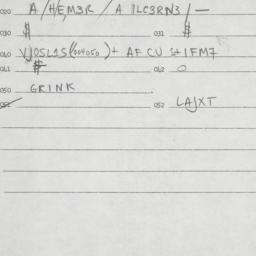 020 A/HEM3R/A 1LC3RN3/—
030 $ 031 $
040 VJ0SL1S(004050)+ AFCU S+1FM7
041 $ 042 0
050 GRINK
051 052 LAJXT